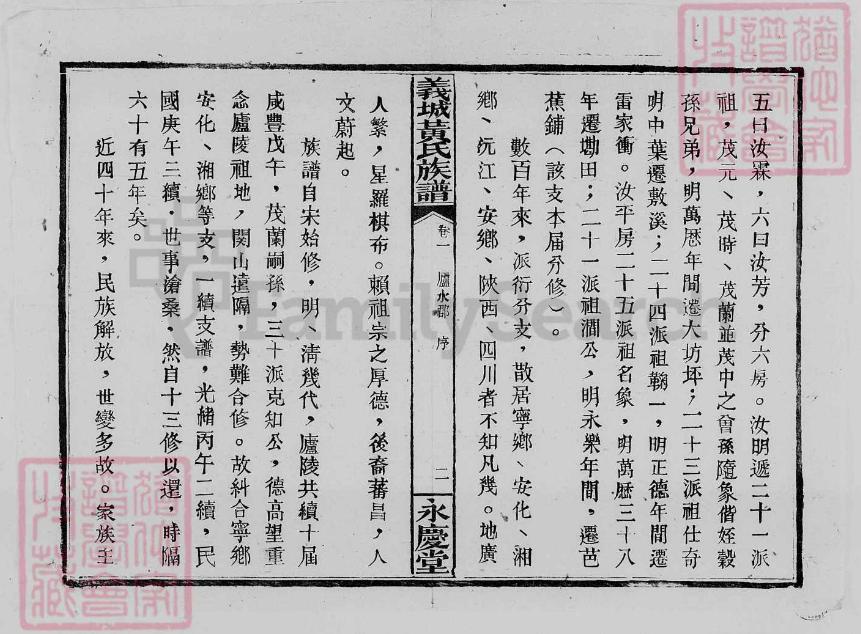 五曰汝霖，六曰汝芳，分六房。汝明遞二十一派
祖，茂元、茂時、茂蘭並茂中之曾孫隨象偕姪穀
孫兄弟，明萬歷年間遷大坊坪；二十三派祖仕奇
明中葉遷敷溪；二十四派祖鞠一，明正德年間遷
雷家衝。汝平房二十五派祖名象，明萬歷三十八
年遷墈田；二十一派祖澗公，明永樂年間，遷芭
蕉鋪（該支本届分修）。
數百年來，派衍分支，散居寧鄉、安化、湘
鄉、沅江、安鄉、陝西、四川者不知凡幾。地廣
義城黃氏族譜
卷一
廬水郡 序
二
永慶堂
人繁，星羅棋布。賴祖宗之厚德，後裔蕃昌，人
文蔚起。
族譜自宋始修，明、淸幾代，廬陵共續十届
咸豐戊午，茂蘭嗣孫，三十派克知公，德高望重
念廬陵祖地，関山遠隔，勢難合修。故糾合寧鄉
安化、湘鄉等支，一續支譜，光緖丙午二續，民
國庚午三續．世事滄桑．然自十三修以還，時隔
六十有五年矣。
近四十年來，民族解放，世變多故。家族主
FamilySearch